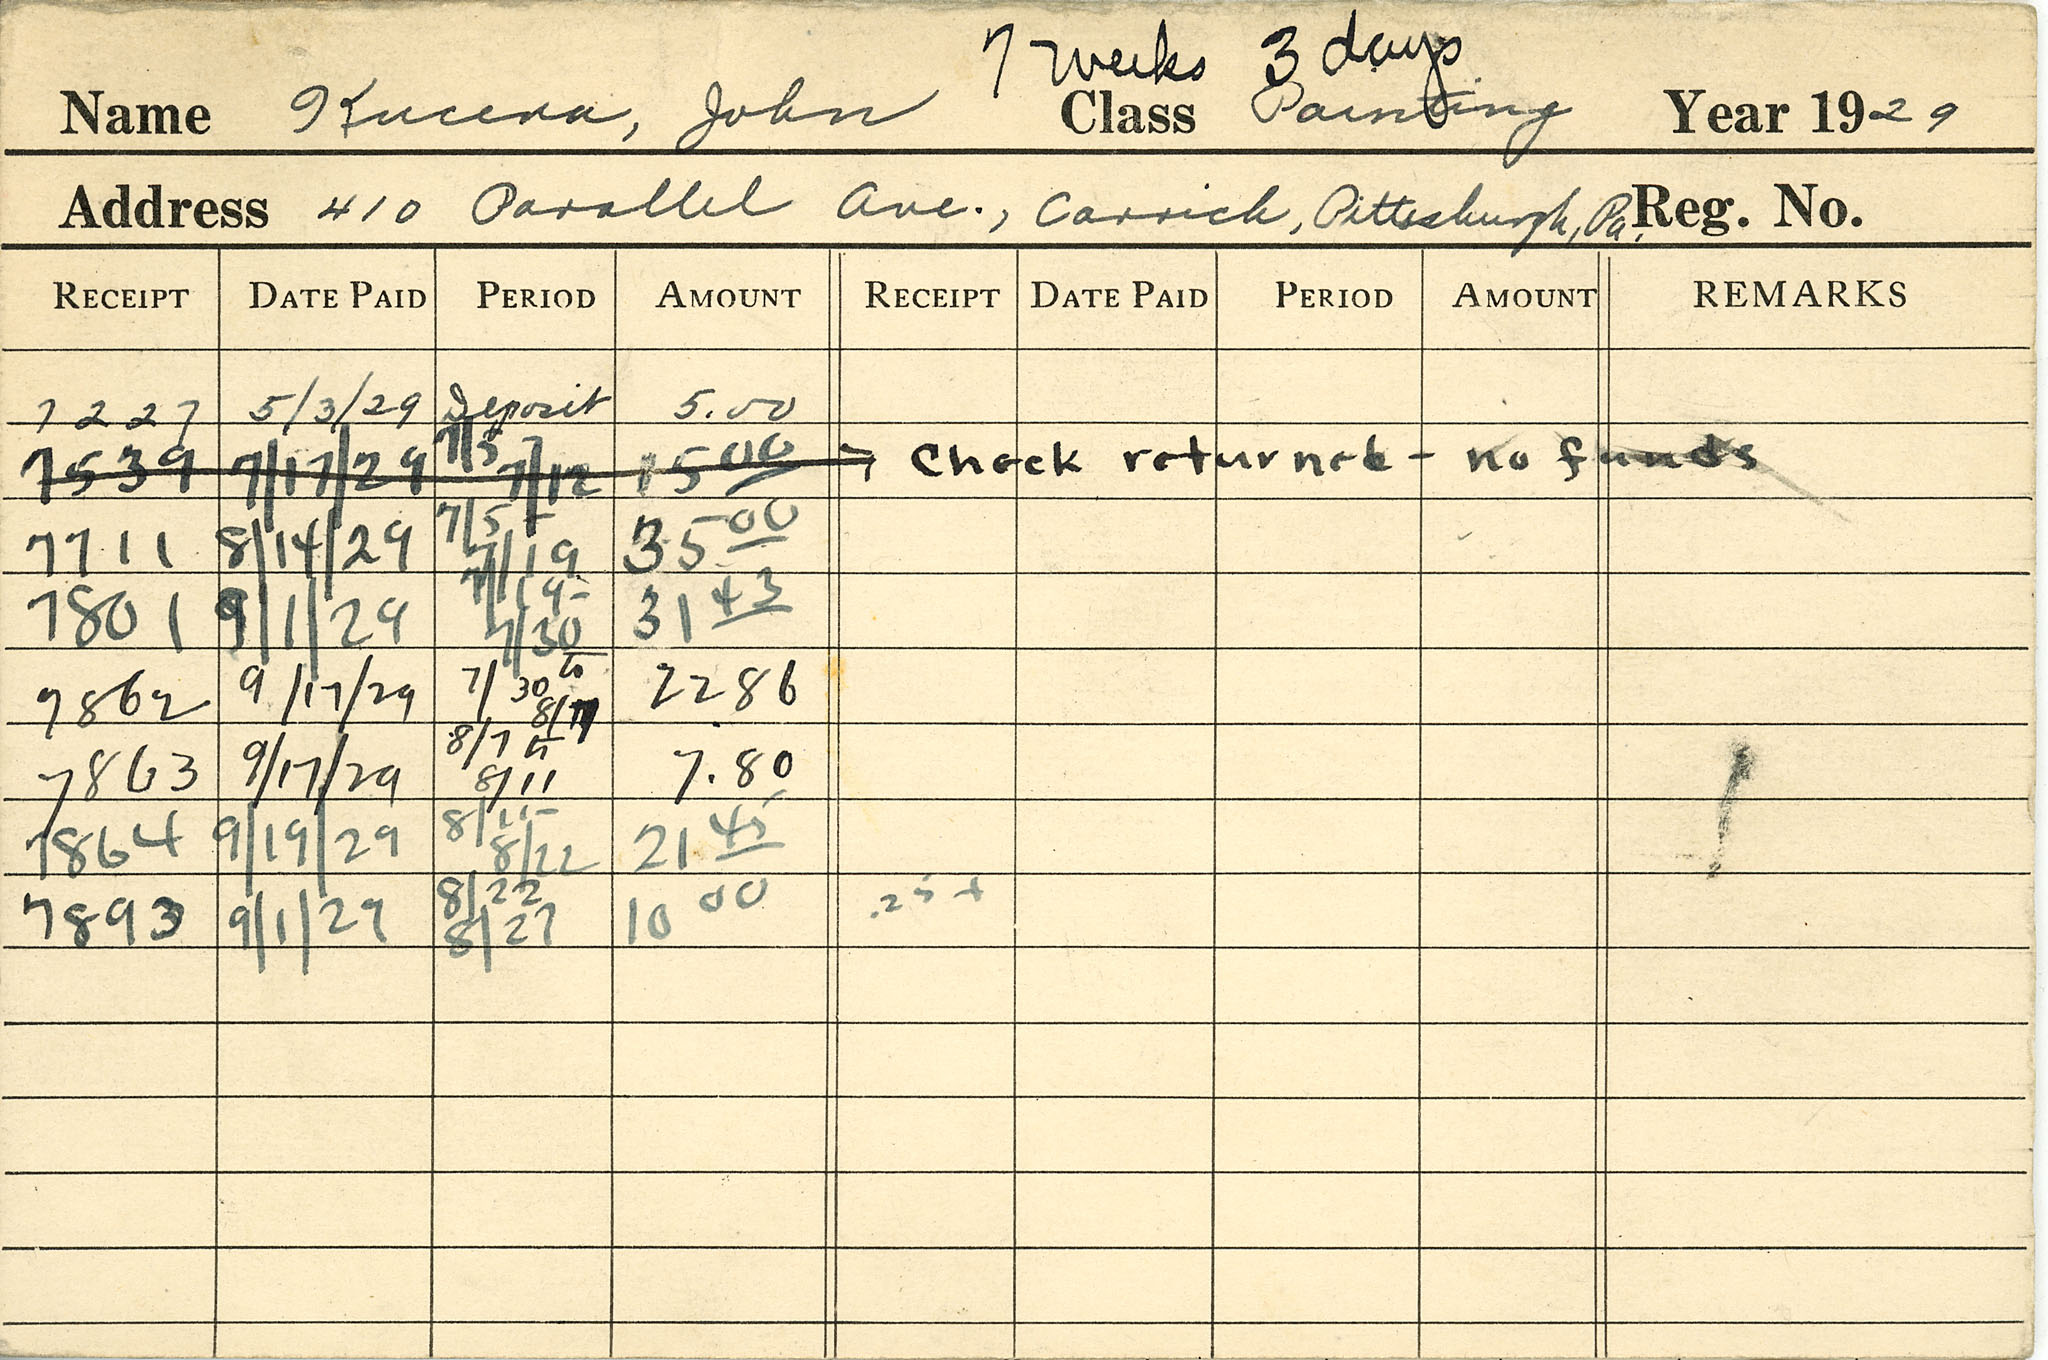 7 weeks 3 days
Name Kucera, John Class Painting Year 1929
Address 410 Parallel Ave., Carrick, Pittsburgh, Pa. Reg. No.
RECEIPT DATE PAID PERIOD AMOUNT RECEIPT DATE PAID PERIOD AMOUNT REMARKS
7227 5/3/29 Deposit 5.00
7539 7/17/29 7/5 7/12 15 00 Check returned - no funds
7711 8/14/29 7/5 - 7/19 35 00
7801 9/1/29 7/19 - 7/30 31 43
7862 9/17/29 7/30 to 8/7 22 86
7863 9/17/29 8/7 to 8/11 7.80
7864 9/19/29 8/11 - 8/22 21 45
7893 9/1/29 8/22 8/27 10 00